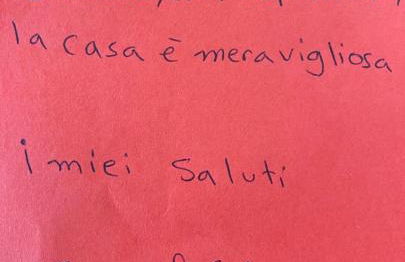 la casa è meravigliosa
i miei saluti